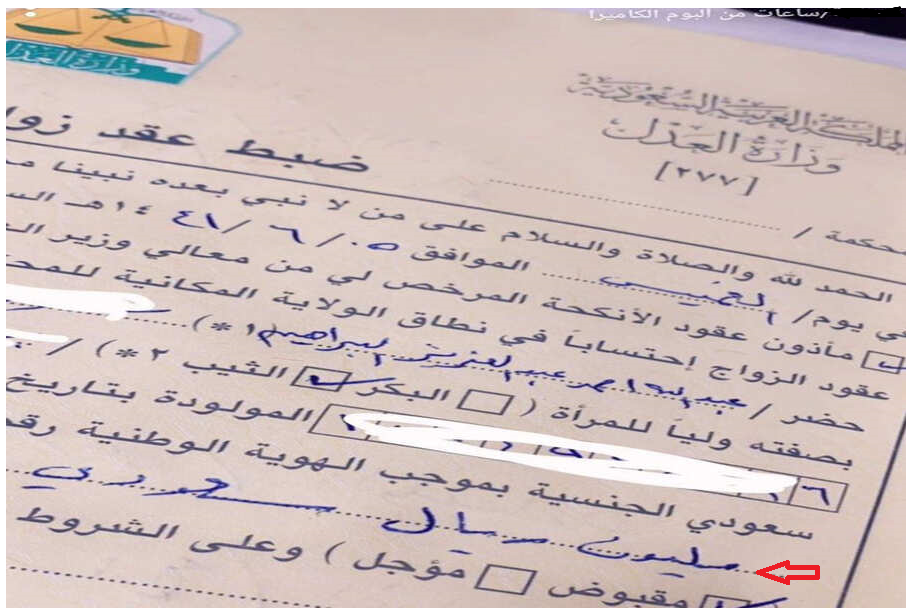 ساعات من ألبوم الكاميرا
وزارة العدل
المملكة العربية السعودية
وزارة العدل
[٢٧٧]
ضبط عقد زوا
محكمة /
الحمد لله والصلاة والسلام على من لا نبي بعده نبينا
في يوم / الخميس الموافق ٠٥ / ٦ / ١٤٤١هـ
مأذون عقود الأنكحة المرخص لي من معالي وزير
عقود الزواج إحتساباً في نطاق الولاية المكانية
حضر / عبدالعزيز ابراهيم (*١
بصفته ولياً للمرأة ( البكر الثيب ٢*) /
٦ المولودة بتاريخ
سعودي الجنسية بموجب الهوية الوطنية
مليون ريال سعودي
مقبوض مؤجل ) وعلى الشروط